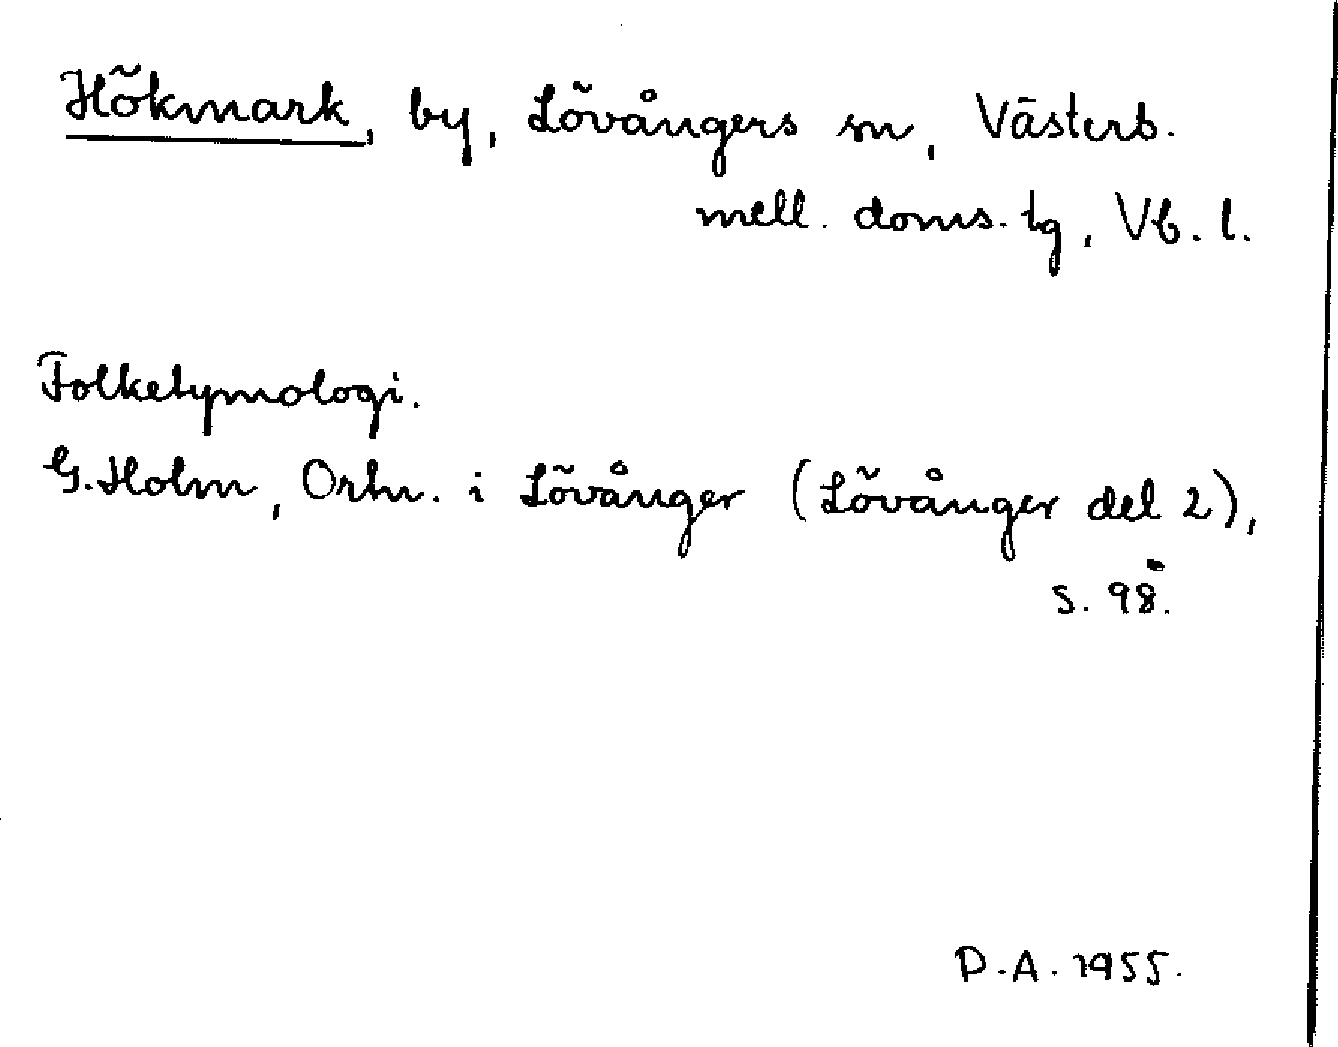 Hökmark, by, Lövångers sn, Västerb.
mell. doms. tg, Vb. l.
Folketymologi.
G. Holm, Ortn. i Lövånger (Lövånger del 2),
s. 98.
D.A. 1955.